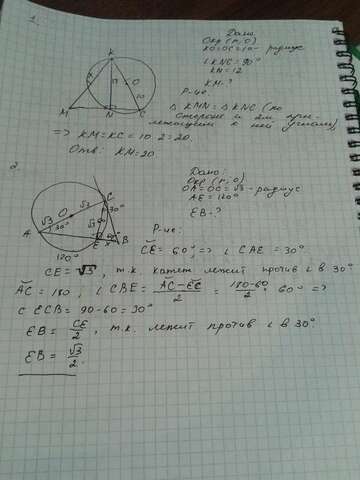 1.
Дано:
Окр (r, O)
KO=OC=10 - радиус
∠KNC = 90°
KN = 12
KM - ?
Р-ие:
△ KMN = △ KNC (по
стороне и 2м при-
лежащим к ней углам),
=> KM = KC = 10·2 = 20.
Отв: KM = 20.
K
O
10
M
N
C
2.
Дано:
Окр (r, O)
OA = OC = √3 - радиус
AE = 120°
EB - ?
Р-ие:
C
O
√3
√3
30°
30°
√3
A
E
60°
B
120°
C͝E = 60°, => ∠ CAE = 30°.
CE = √3, т.к. катет лежит против ∠ в 30°
A͝C = 180, ∠ CBE = (AC - EC)/2 = (180-60)/2 = 60° =>
ECB = 90 - 60 = 30°
EB = CE/2, т.к. лежит против ∠ в 30°.
EB = √3/2.